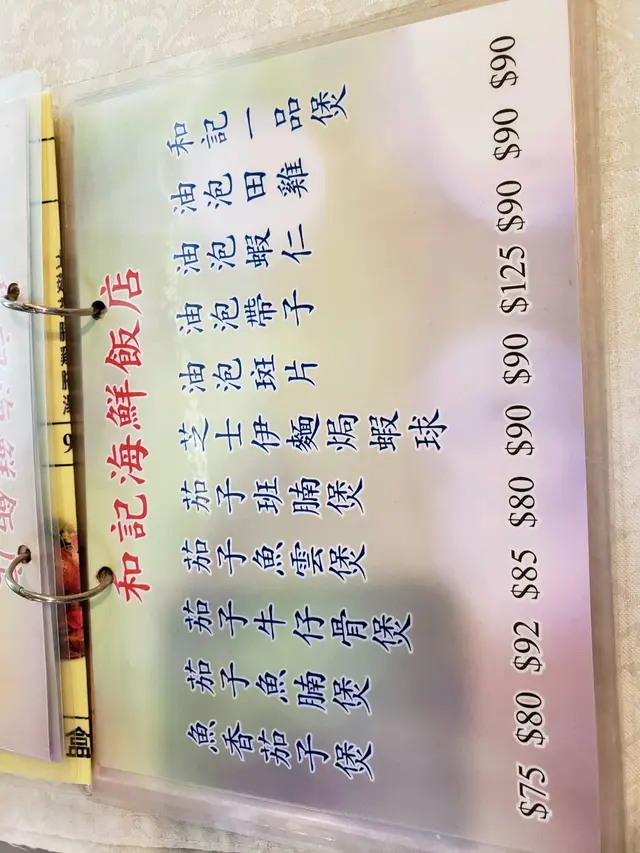 和記海鮮飯店
和記一品煲
油泡田雞
油泡蝦仁
油泡帶子
油泡斑片
芝士伊麵焗蝦球
茄子班腩煲
茄子魚雲煲
茄子牛仔骨煲
茄子魚腩煲
魚香茄子煲
$75 $80 $92 $85 $80 $90 $90 $125 $90 $90 $90